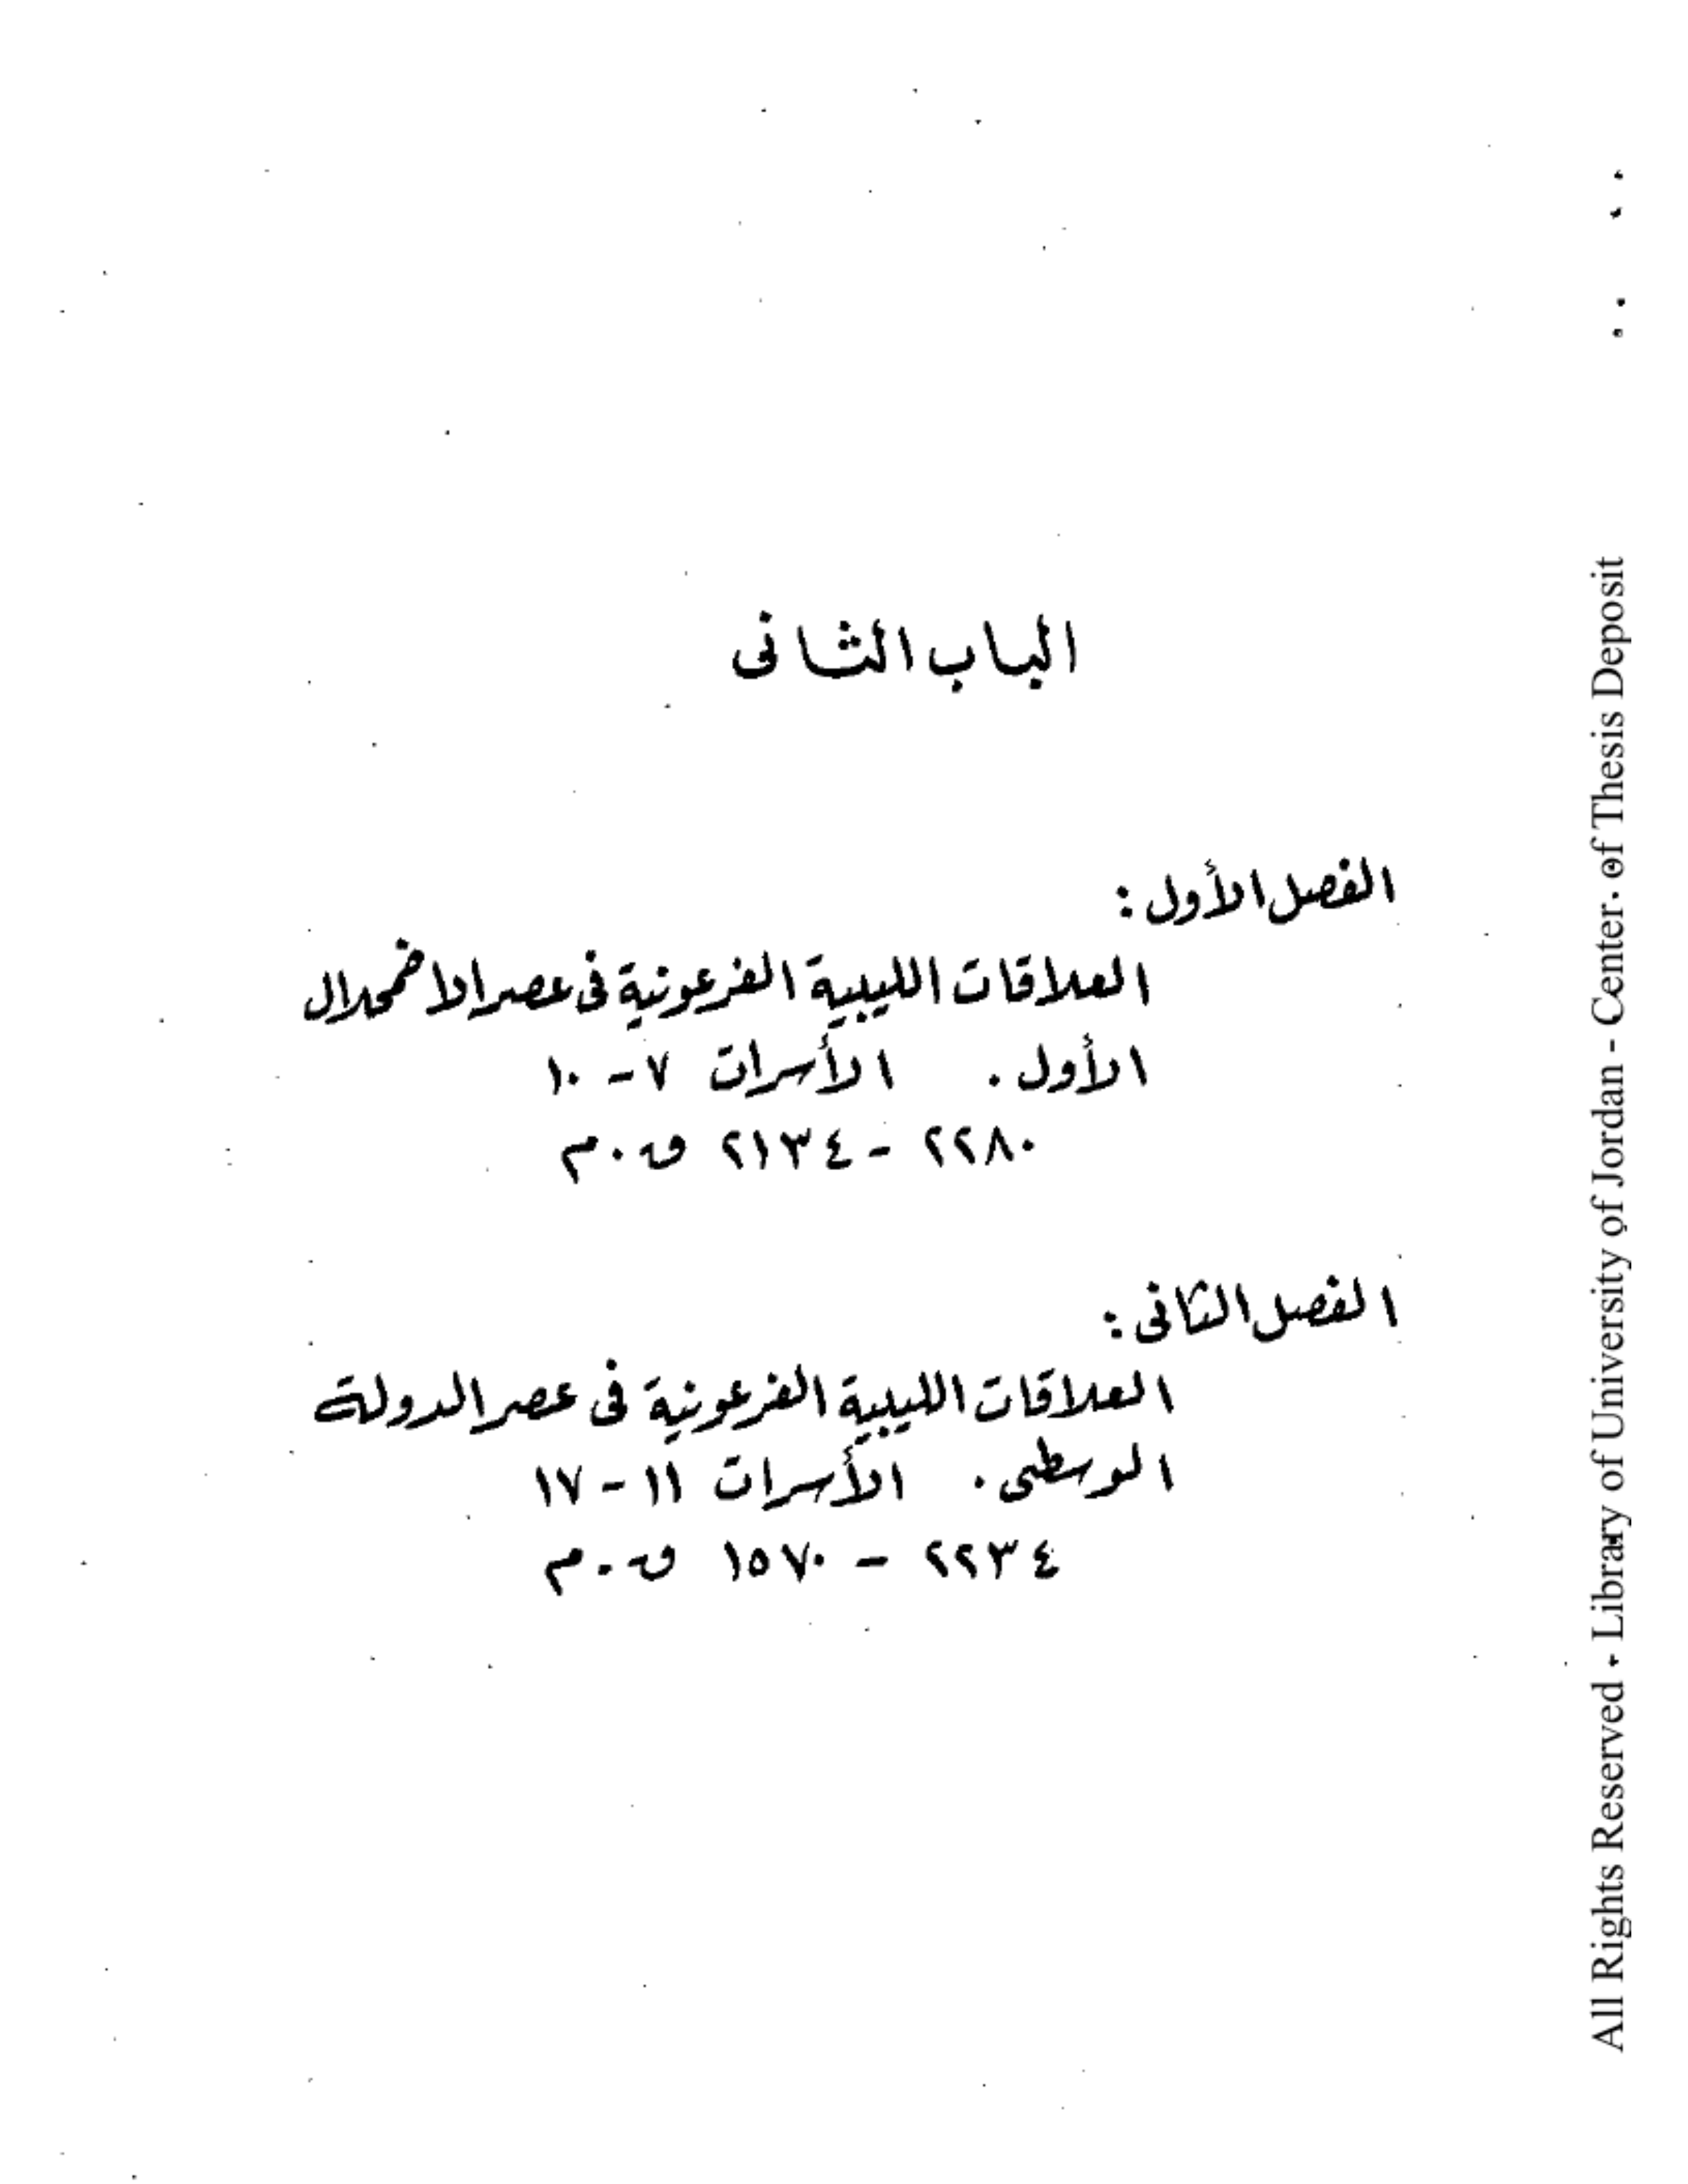 الباب الثانى
الفصل الأول :
العلاقات الليبية الفرعونية فى عصر الاضمحلال
الأول . الأسرات ٧ - ١٠
٢٢٨٠ - ٢١٣٤ ق . م
الفصل الثانى :
العلاقات الليبية الفرعونية فى عصر الدولة
الوسطى . الأسرات ١١ - ١٧
٢٢٣٤ - ١٥٧٠ ق . م
All Rights Reserved - Library of University of Jordan - Center of Thesis Deposit